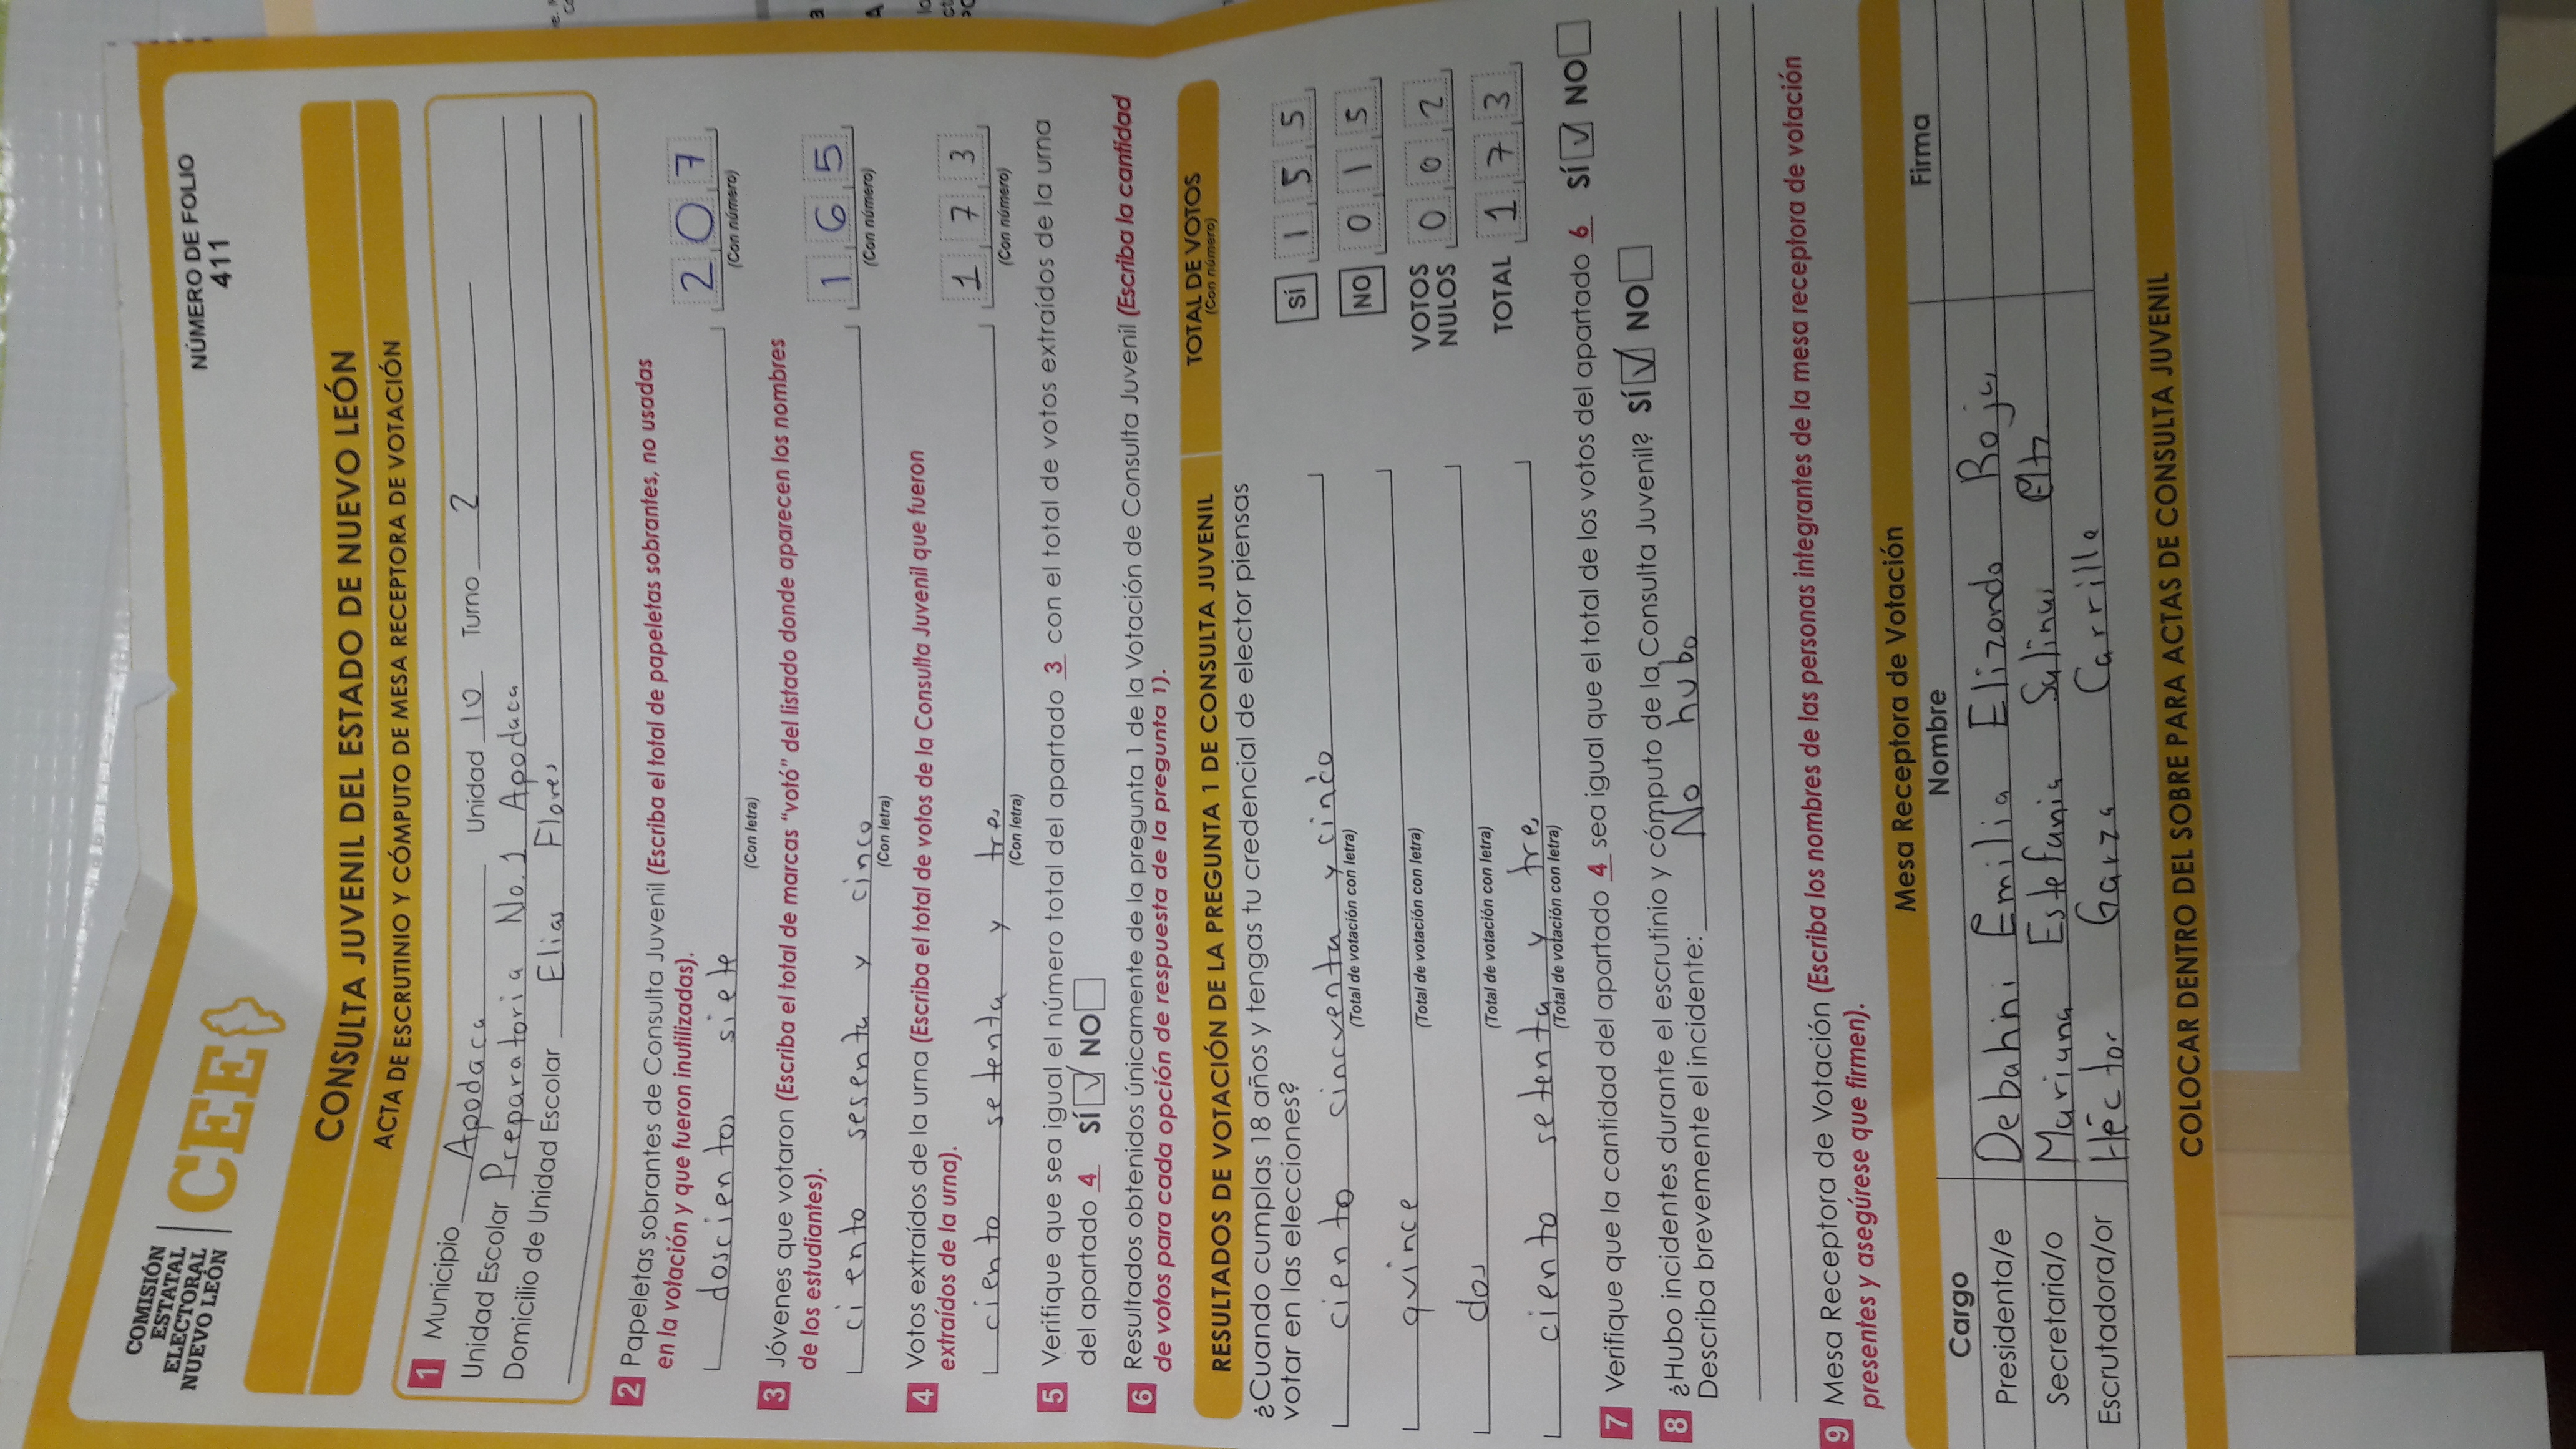 COMISIÓN
ESTATAL
ELECTORAL
NUEVO LEÓN
CEE
NÚMERO DE FOLIO
411
CONSULTA JUVENIL DEL ESTADO DE NUEVO LEÓN
ACTA DE ESCRUTINIO Y CÓMPUTO DE MESA RECEPTORA DE VOTACIÓN
1 Municipio Apodaca Unidad 10 Turno 2
Unidad Escolar Preparatoria No. 1 Apodaca
Domicilio de Unidad Escolar Elias Flores
2 Papeletas sobrantes de Consulta Juvenil (Escriba el total de papeletas sobrantes, no usadas
en la votación y que fueron inutilizadas).
doscientos siete 2 0 7
(Con letra) (Con número)
3 Jóvenes que votaron (Escriba el total de marcas "votó" del listado donde aparecen los nombres
de los estudiantes).
ciento sesenta y cinco 1 6 5
(Con letra) (Con número)
4 Votos extraídos de la urna (Escriba el total de votos de la Consulta Juvenil que fueron
extraídos de la urna).
ciento setenta y tres 1 7 3
(Con letra) (Con número)
5 Verifique que sea igual el número total del apartado 3 con el total de votos extraídos de la urna
del apartado 4 SÍ ✓ NO
6 Resultados obtenidos únicamente de la pregunta 1 de la Votación de Consulta Juvenil (Escriba la cantidad
de votos para cada opción de respuesta de la pregunta 1).
RESULTADOS DE VOTACIÓN DE LA PREGUNTA 1 DE CONSULTA JUVENIL TOTAL DE VOTOS
(Con número)
¿Cuando cumplas 18 años y tengas tu credencial de elector piensas
votar en las elecciones?
ciento cincuenta y cinco SÍ 1 5 5
(Total de votación con letra)
quince NO 0 1 5
(Total de votación con letra)
dos VOTOS NULOS 0 0 2
(Total de votación con letra)
ciento setenta y tres TOTAL 1 7 3
(Total de votación con letra)
7 Verifique que la cantidad del apartado 4 sea igual que el total de los votos del apartado 6 SÍ ✓ NO
8 ¿Hubo incidentes durante el escrutinio y cómputo de la Consulta Juvenil? SÍ ✓ NO
Describa brevemente el incidente: No hubo
9 Mesa Receptora de Votación (Escriba los nombres de las personas integrantes de la mesa receptora de votación
presentes y asegúrese que firmen).
Mesa Receptora de Votación
Cargo Nombre Firma
Presidenta/e Debahni Emilia Elizondo Rojas
Secretaria/o Mariana Estefania Salinas
Escrutadora/or Héctor Garza Carrillo
COLOCAR DENTRO DEL SOBRE PARA ACTAS DE CONSULTA JUVENIL